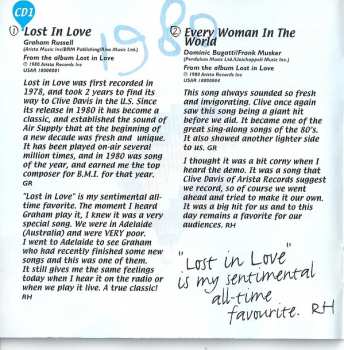 CD1
1980
① Lost In Love
Graham Russell
(Arista Music Inc/BRM Publishing/Riva Music Ltd.)
From the album Lost in Love
℗ 1980 Arista Records Inc
USAR 18000001
Lost in Love was first recorded in
1978, and took 2 years to find its
way to Clive Davis in the U.S. Since
its release in 1980 it has become a
classic, and established the sound of
Air Supply that at the beginning of
a new decade was fresh and unique.
It has been played on-air several
million times, and in 1980 was song
of the year, and earned me the top
composer for B.M.I. for that year.
GR
"Lost in Love" is my sentimental all-
time favorite. The moment I heard
Graham play it, I knew it was a very
special song. We were in Adelaide
(Australia) and were VERY poor.
I went to Adelaide to see Graham
who had recently finished some new
songs and this was one of them.
It still gives me the same feelings
today when I hear it on the radio or
when we play it live. A true classic!
RH
② Every Woman In The
World
Dominic Bugatti/Frank Musker
(Pendulum Music Ltd./Unichappell Music Inc.)
From the album Lost in Love
℗ 1980 Arista Records Inc
USAR 18000004
This song always sounded so fresh
and invigorating. Clive once again
saw this song being a giant hit
before we did. It became one of the
great sing-along songs of the 80's.
It also showed another lighter side
to us. GR
I thought it was a bit corny when I
heard the demo. It was a song that
Clive Davis of Arista Records suggest
we record, so of course we went
ahead and tried to make it our own.
It was a big hit for us and to this
day remains a favorite for our
audiences. RH
"Lost in Love"
is my sentimental
all-time
favourite. RH